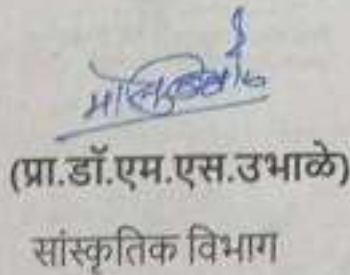 (प्रा.डॉ.एम.एस.उभाळे)
सांस्कृतिक विभाग